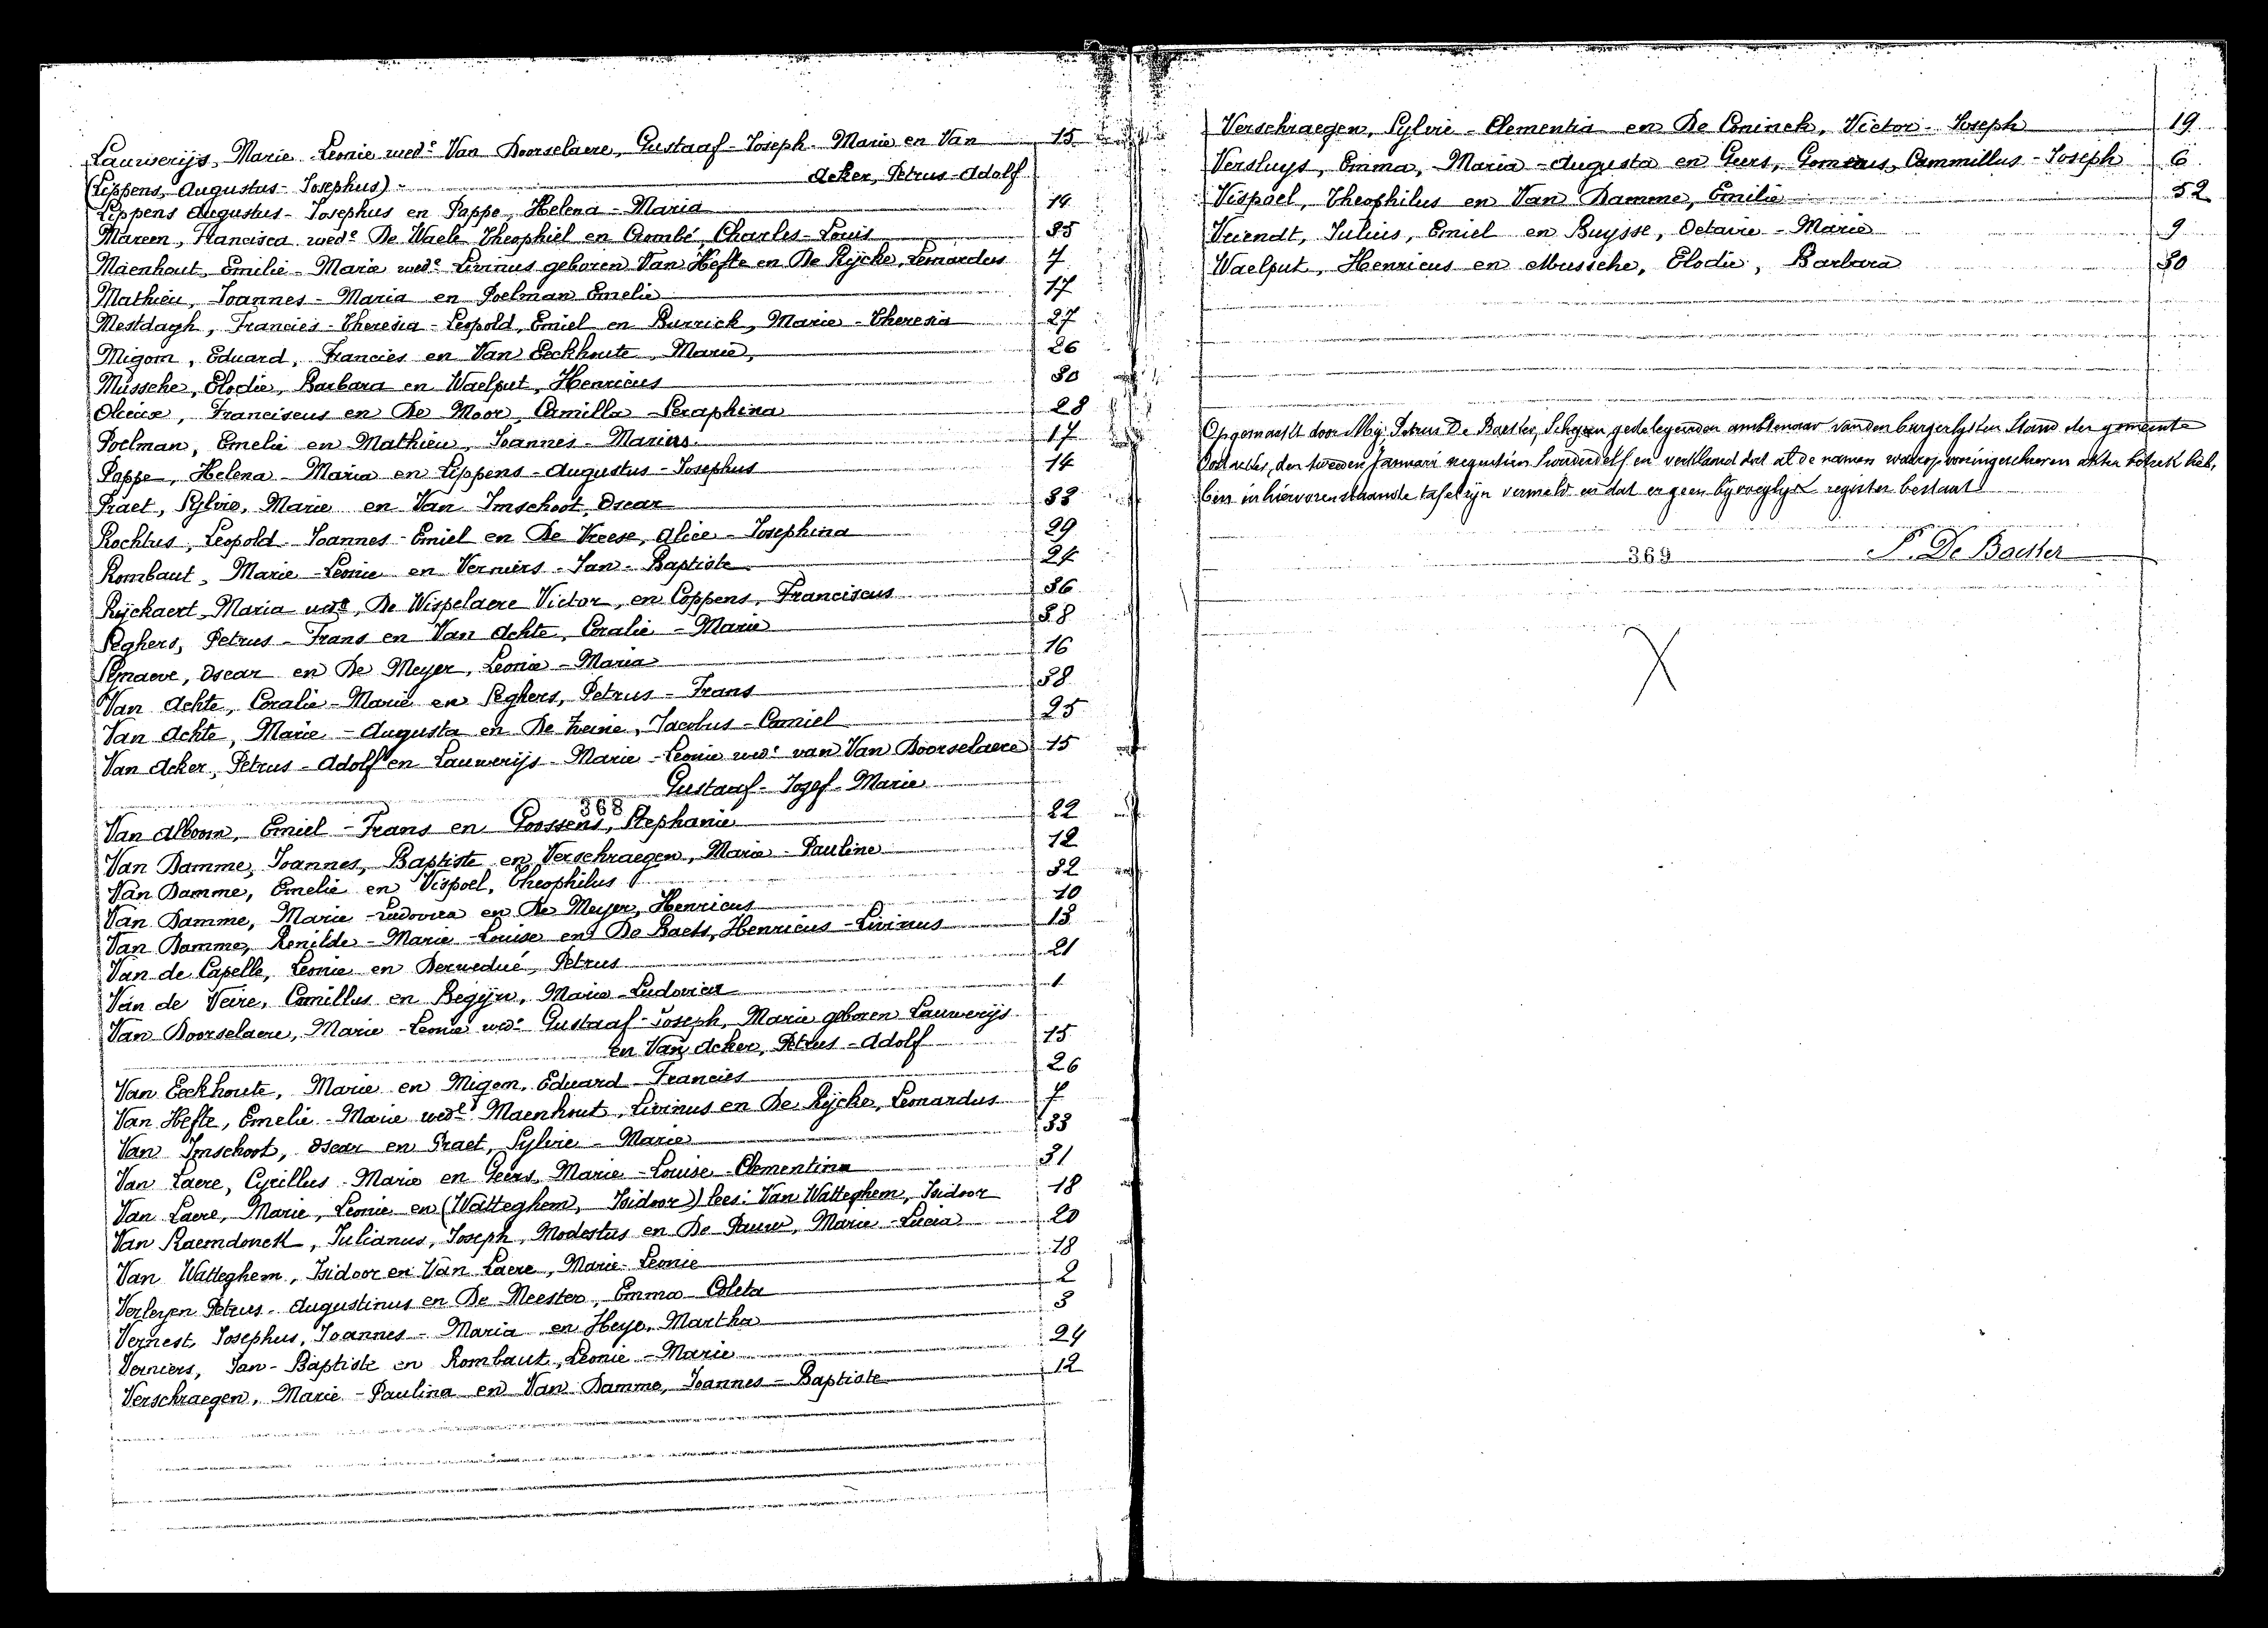 Lauwerijs, Marie-Leonie wede Van Doorselaere, Gustaaf-Joseph-Marie en Van 15
(Lippens, Augustus-Josephus)- Acker, Petrus-Adolf
Lippens Augustus-Josephus en Pappe, Helena-Maria 14
Mareen, Francisca wede De Waele Theophiel en Crombé, Charles-Louis 35
Maenhout, Emilie-Marie wede Livinus geboren Van Hefte en De Rijcke, Leonardus 7
Mathieu, Joannes-Maria en Poelman Emelie 17
Mestdagh, Francies-Theresia-Leopold, Emiel en Burrick, Marie-Theresia 27
Migom, Eduard, Francies en Van Eeckhoute, Marie, 26
Mussche, Elodie, Barbara en Waelput, Henricus 30
Franciscus en De Moor, Camilla-Seraphina 28
Poelman, Emelie en Mathieu, Joannes-Marius 17
Pappe, Helena-Maria en Lippens-Augustus-Josephus 14
Praet, Sylvie, Marie en Van Imschoot, Oscar 33
Rochtus, Leopold-Joannes-Emiel en De Vreese, Alice-Josephina 29
Rombaut, Marie-Leonie en Verniers-Jan-Baptiste 24
Rijckaert, Maria wede, De Wispelaere Victor, en Coppens, Franciscus 36
Seghers, Petrus-Frans en Van Achte, Coralie-Marie 38
Oscar en De Meyer, Leonie-Maria 16
Van Achte, Coralie-Marie en Seghers, Petrus-Frans 38
Van Achte, Marie-Augusta en De Jacobus-Camiel 25
Van Acker, Petrus-Adolf en Lauwerijs-Marie-Leonie wede van Van Doorselaere 15
Gustaaf-Jozef-Marie
368
Van Alboom, Emiel-Frans en Goossens, Stephanie 22
Van Damme, Joannes, Baptiste en Verschraegen, Marie-Pauline 12
Van Damme, Emelie en Vispoel, Theophilus 32
Van Damme, Marie-Ludovica en De Meyer, Henricus 10
Van Damme, Renilde-Marie-Louise en De Baets, Henricus-Livinus 13
Van de Capelle, Leonie en Derwedué, Petrus 21
Van de Veire, Camillus en Begijn, Marie-Ludovica 1
Van Doorselaere, Marie-Leonie wede Gustaaf-Joseph, Marie geboren Lauwerijs
en Van Acker, Petrus-Adolf 15
Van Eeckhoute, Marie en Migom, Eduard-Francies 26
Van Hefte, Emelie-Marie wede Maenhout, Livinus en De Rijcke, Leonardus 7
Van Imschoot, Oscar en Praet, Sylvie-Marie 33
Van Laere, Cyrillus-Marie en Geers, Marie-Louise-Clementina 31
Van Laere, Marie, Leonie en (Watteghem, Isidoor) lees: Van Watteghem, Isidoor 18
Van Raemdonck, Julianus, Joseph, Modestus en De Pauw, Marie-Lucia 20
Van Watteghem, Isidoor en Van Laere, Marie-Leonie 18
Verleyen Petrus-Augustinus en De Meester, Emma-Coleta 2
Vernest, Josephus, Joannes-Maria en Heye, Martha 3
Verniers, Jan-Baptiste en Rombaut, Leonie-Marie 24
Verschraegen, Marie-Paulina en Van Damme, Joannes-Baptiste 12
Verschraegen, Sylvie-Clementia en De Coninck, Victor-Joseph 19
Versluys, Emma, Maria-Augusta en Geers, Gomarus, Cammillus-Joseph 6
Vispoel, Theophilus en Van Damme, Emilie 32
Vriendt, Julius, Emiel en Buysse, Octavie-Marie 9
Waelput, Henricus en Mussche, Elodie, Barbara 30
Opgemaakt door Mij, Petrus De Baester, Schepen, gedelegeerden ambtenaar van den burgerlijken Stand der gemeente
Oostacker, den tweeden Januari negentien honderd elf en verklaard dat al de namen waarop voringeschreven akten betrek heb,
ben in hiervorenstaande tafel zijn vermeld en dat er geen bijvoeglyk register bestaat
369 P. De Baester